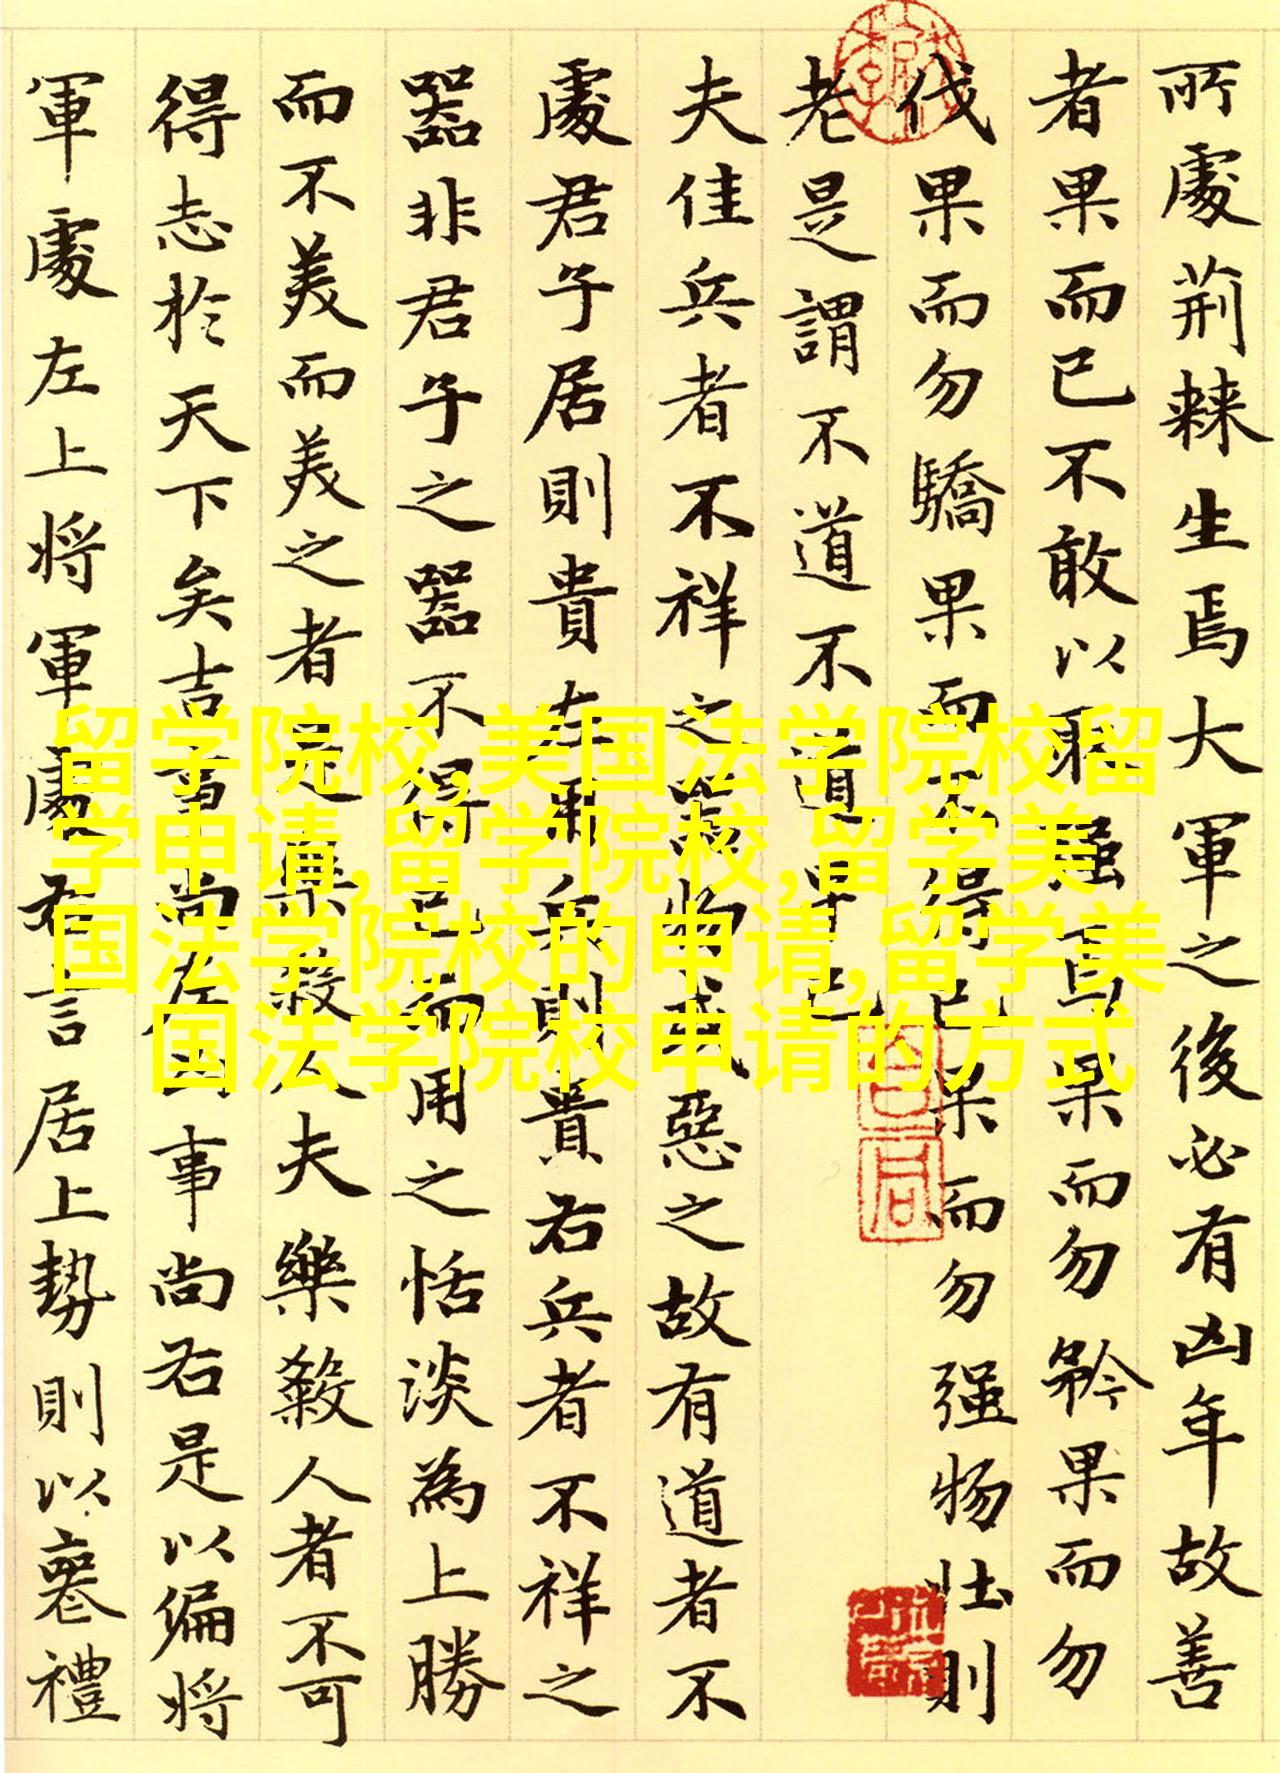 所處荆棘生焉大軍之後必有凶年故善
者果而已不敢以取强焉果而勿矜果而勿
伐果而勿驕果而不得已果而勿强物壮則
老是謂不道不道早已
夫佳兵者不祥之器物或惡之故有道者不
處君子居則貴左用兵則貴右兵者不祥之
器非君子之器不得已而用之恬淡為上勝
而不美而美之者是樂殺人夫樂殺人者不可
得志於天下矣吉事尚左凶事尚右是以偏將
軍處左上將軍處右言居上勢則以喪禮
留学院校,美国法学院校留
学申请,留学院校,留学美
国法学院校的申请,留学美
国法学院校申请的方式